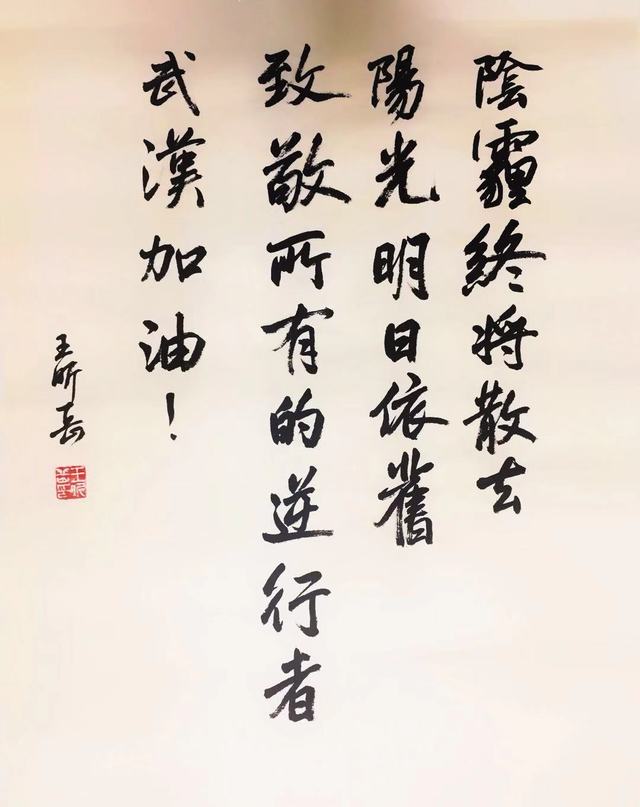 陰霾終將散去
陽光明日依舊
致敬所有的逆行者
武漢加油！
王昕岳